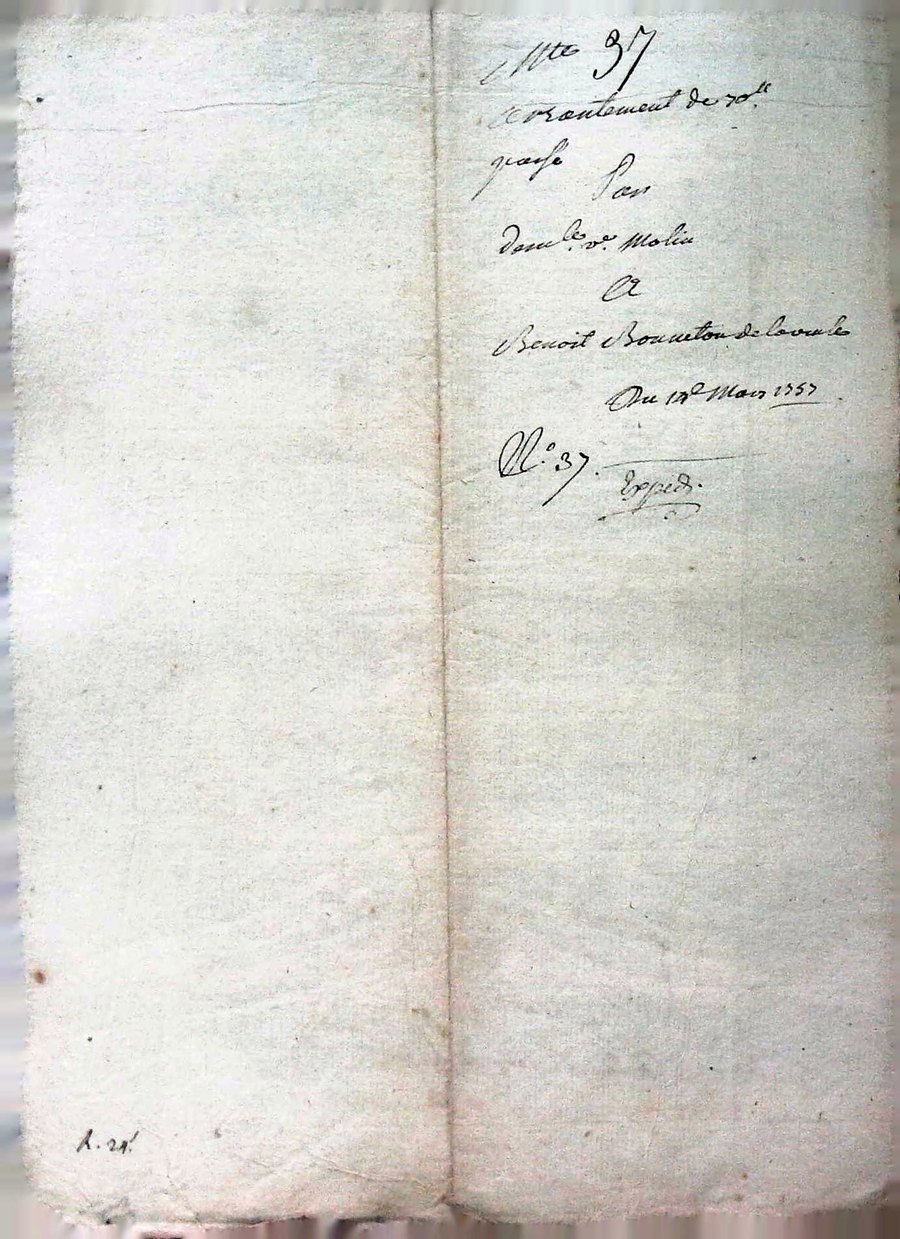 Cotte 37
arrantement de 70.ll
passé
Par
dem.lle v.e Molin
A
Benoit Bonneton de lavaule
Du 12e Mars 1757
N.o 37.
Expedi.
R. 24.s